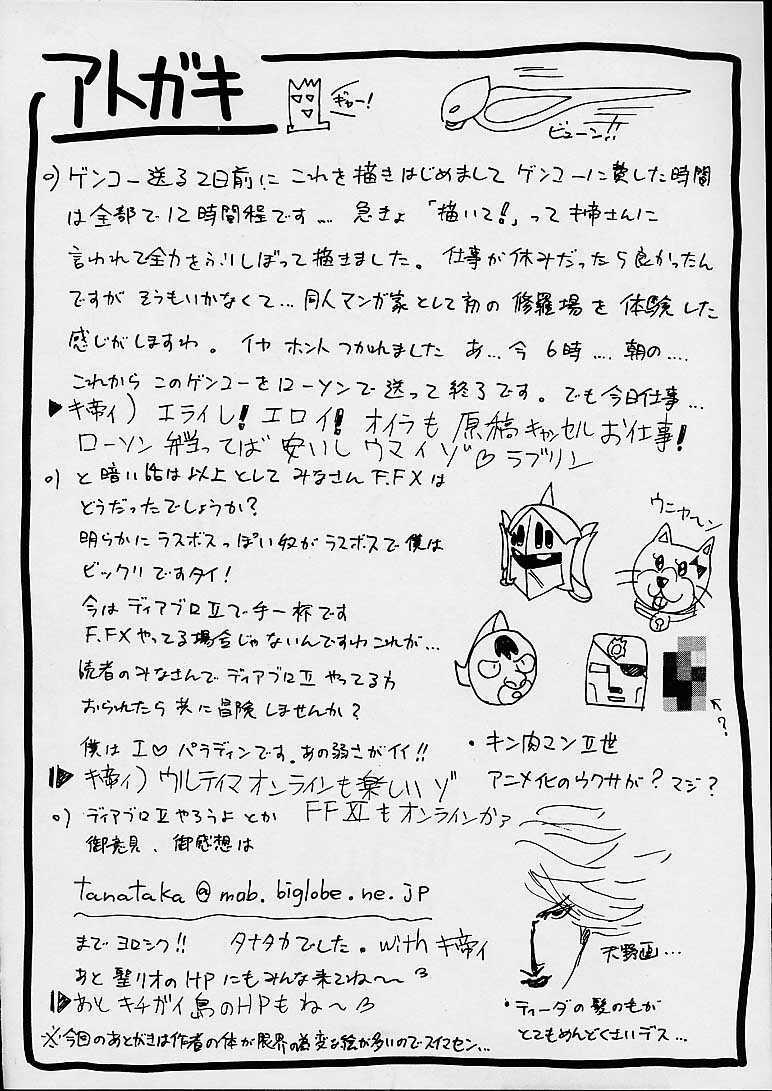 アトガキ
ギャー!
ビューン!!
o) ゲンコー送る2日前に これを描きはじめまして ゲンコーに費した時間
は全部で12時間程です… 急きょ 「描いて!」って キ帝さんに
言われて全力をふりしぼって描きました。 仕事が休みだったら良かったん
ですが そうもいかなくて… 同人マンガ家として初の 修羅場を 体験した
感じがしますわ。 イヤ ホント つかれました あ…今 6時…. 朝の….
これから このゲンコーをローソンで送って終了です。 でも今日仕事…
▶キ帝ィ) エライし! エロイ! オイラも 原稿キャンセル お仕事!
ローソン 弁当ってば 安いし ウマイゾ♡ ラブリン
o) と 暗い話は以上として みなさん F.FXは
どうだったでしょうか?
明らかに ラスボスっぽい奴が ラスボスで 僕は
ビックリですタイ!
今は ディアブロⅡで手一杯です
F.FXやってる場合じゃないんですわ これが…
読者のみなさんで ディアブロⅡ やってる方
おられたら 共に冒険しませんか?
僕は I♡ パラディンです。あの弱さがイイ!!
▶キ帝ィ) ウルティマオンラインも楽しいゾ
ウニャ〜ン
?
・キン肉マンⅡ世
アニメ化のウワサが? マジ?
o) ディアブロⅡやろうよ とか FFXIもオンラインかァ
御意見、御感想は
tanataka@mob.biglobe.ne.jp
まで ヨロシク!! タナタカでした。with キ帝ィ
あと 聖リオのHPにもみんな来てね〜
▶あと キチガイ島のHPもね〜
天野画…
・ティーダの髪のもが
とてもめんどくさいデス…
※今回のあとがきは作者の体が限界の為変な絵が多いのでスイマセン…